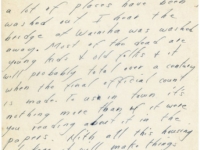 a lot of places have been
washed out I hear the
bridge at Wausha was washed
away. Most of the dead are
young kids & old folks & it
will probably total over a century
when the final official count
is made. to us in town it's
nothing more than if it were
you reading about it in the
papers. With all this housing
will make things